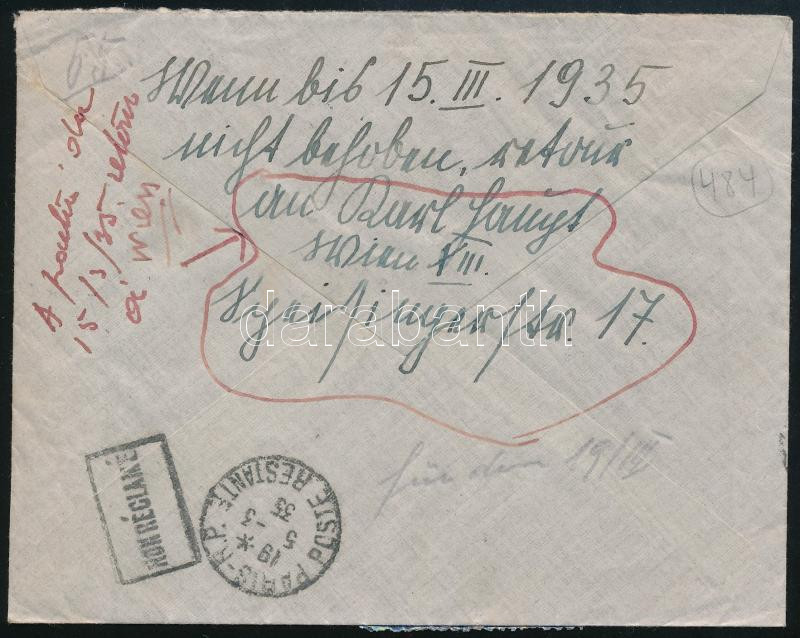 Wenn bis 15. III. 1935
nicht behoben, retour
an Karl Haupt
Wien XIII.
Speisingerstr. 17.
A partir du
15/3/35 retour
à Wien
484
für dem 19/III
NON RÉCLAMÉ
PARIS-R.P. POSTE RESTANTE
19 *
5 -3
35
darabanth